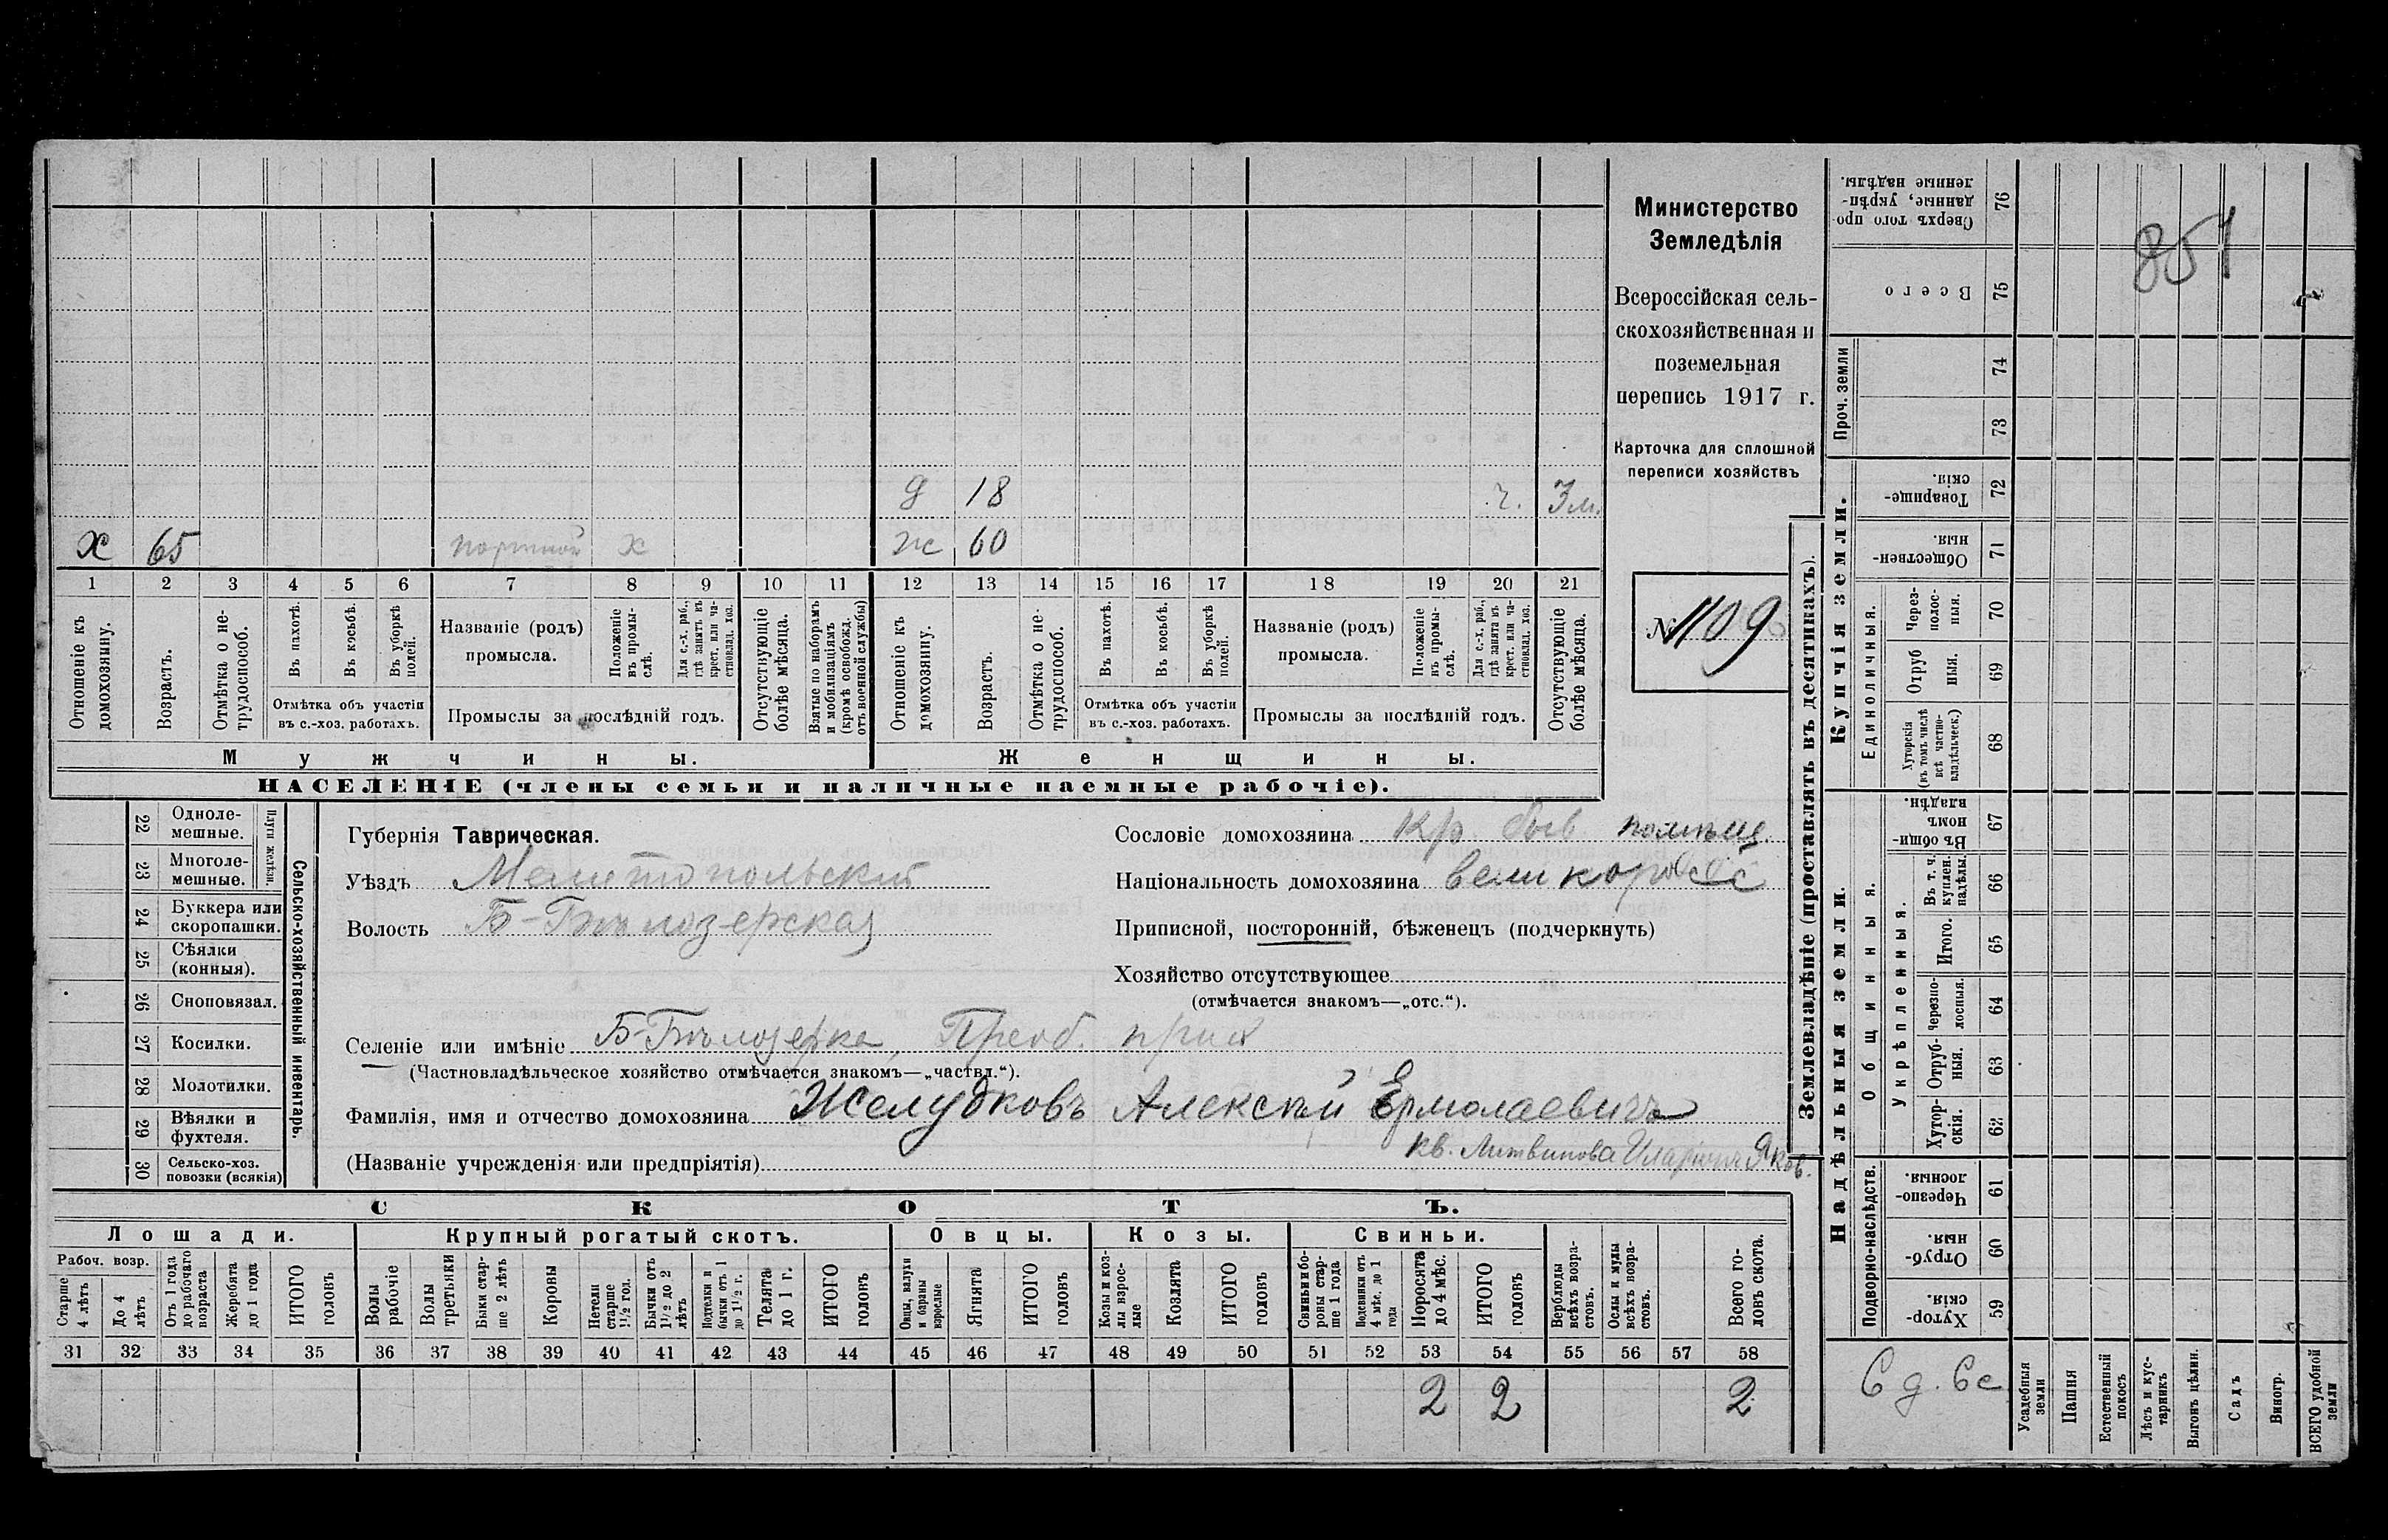 Министерство
Земледѣлія
Всероссійская сель-
скохозяйственная и
поземельная
перепись 1917 г.
Карточка для сплошной
переписи хозяйствъ
№ 1109
851
д 18 г. 3 м.
х 65 портной х ж 60
1 2 3 4 5 6 7 8 9 10 11 12 13 14 15 16 17 18 19 20 21
Отношеніе къ домохозяину.
Возрастъ.
Отмѣтка о не-трудоспособ.
Въ пахотѣ.
Въ косьбѣ.
Въ уборкѣ полей.
Отмѣтка объ участіи
въ с.-хоз. работахъ.
Названіе (родъ)
промысла.
Положеніе въ промы-слѣ.
Для с.-х. раб., гдѣ занятъ въ крест. или ча-стновлад. хоз.
Промыслы за послѣдній годъ.
Отсутствующіе болѣе мѣсяца.
Взятые по наборамъ и мобилизаціямъ (кромѣ освобожд. отъ военной службы)
Отношеніе къ домохозяину.
Возрастъ.
Отмѣтка о не-трудоспособ.
Въ пахотѣ.
Въ косьбѣ.
Въ уборкѣ полей.
Отмѣтка объ участіи
въ с.-хоз. работахъ.
Названіе (родъ)
промысла.
Положеніе въ промы-слѣ.
Для с.-х. раб., гдѣ занята въ крест. или ча-стновлад. хоз.
Промыслы за послѣдній годъ.
Отсутствующіе болѣе мѣсяца.
Мужчины. Женщины.
НАСЕЛЕНІЕ (члены семьи и наличные наемные рабочіе).
22 Одноле-мешные.
23 Многоле-мешные.
Плуги желѣзн.
24 Буккера или скоропашки.
25 Сѣялки (конныя).
26 Сноповязал.
27 Косилки.
28 Молотилки.
29 Вѣялки и фухтеля.
30 Сельско-хоз. повозки (всякія)
Сельско-хозяйственный инвентарь.
Губернія Таврическая.
Уѣздъ Мелитопольский
Волость Б-Бѣлозерская
Сословіе домохозяина Кр. быв. помѣщ.
Національность домохозяина великоросс
Приписной, посторонній, бѣженецъ (подчеркнуть)
Хозяйство отсутствующее
(отмѣчается знакомъ—„отс.“).
Селеніе или имѣніе Б-Бѣлозерка, Преоб. прих
(Частновладѣльческое хозяйство отмѣчается знакомъ—„частвл.“).
Фамилія, имя и отчество домохозяина Желудковъ Алексѣй Ермолаевичъ
кв. Литвинова Иларіонъ Яков.
(Названіе учрежденія или предпріятія)
СКОТЪ.
Лошади. Крупный рогатый скотъ. Овцы. Козы. Свиньи.
Рабоч. возр.
Старше 4 лѣтъ
До 4 лѣтъ
Отъ 1 года до рабочаго возраста
Жеребята до 1 года
ИТОГО головъ
Волы рабочіе
Волы третьяки
Быки стар-ше 2 лѣтъ
Коровы
Нетели старше 1½ год.
Бычки отъ 1½ до 2 лѣтъ
Подтелки и бычки отъ 1 до 1½ г.
Телята до 1 г.
ИТОГО головъ
Овцы, валухи и бараны взрослые
Ягнята
ИТОГО головъ
Козы и коз-лы взрос-лые
Козлята
ИТОГО головъ
Свиньи и бо-ровы стар-ше 1 года
Подсвинки отъ 4 мѣс. до 1 года
Поросята до 4 мѣс.
ИТОГО головъ
Верблюды всѣхъ возра-стовъ.
Ослы и мулы всѣхъ возра-стовъ.
Всего го-ловъ скота.
31 32 33 34 35 36 37 38 39 40 41 42 43 44 45 46 47 48 49 50 51 52 53 54 55 56 57 58
2 2 2
Землевладѣніе (проставлять въ десятинахъ).
Надѣльныя земли. Купчія земли. Проч. земли
Подворно-наслѣдств.
Общинныя.
Укрѣпленныя.
Единоличныя.
Сверхъ того про-данные, укрѣп-ленные надѣлы. 76
Всего 75
74
73
Товарище-скія. 72
Обществен-ныя. 71
Через-полос-ныя. 70
Отруб ныя. 69
Хуторскія (въ томъ числѣ всѣ частно-владѣльческ.) 68
Въ общи номъ владѣн. 67
Въ т. ч. куплен. надѣлы. 66
Итого. 65
Черезпо-лосныя. 64
Отруб-ныя. 63
Хутор-скія. 62
Черезпо-лосныя. 61
Отруб-ныя. 60
Хутор-скія. 59
Усадебныя земли
Пашня
Естественный покосъ
Лѣсъ и кус-тарникъ
Выгонъ цѣлин.
Садъ
Виногр.
ВСЕГО удобной земли